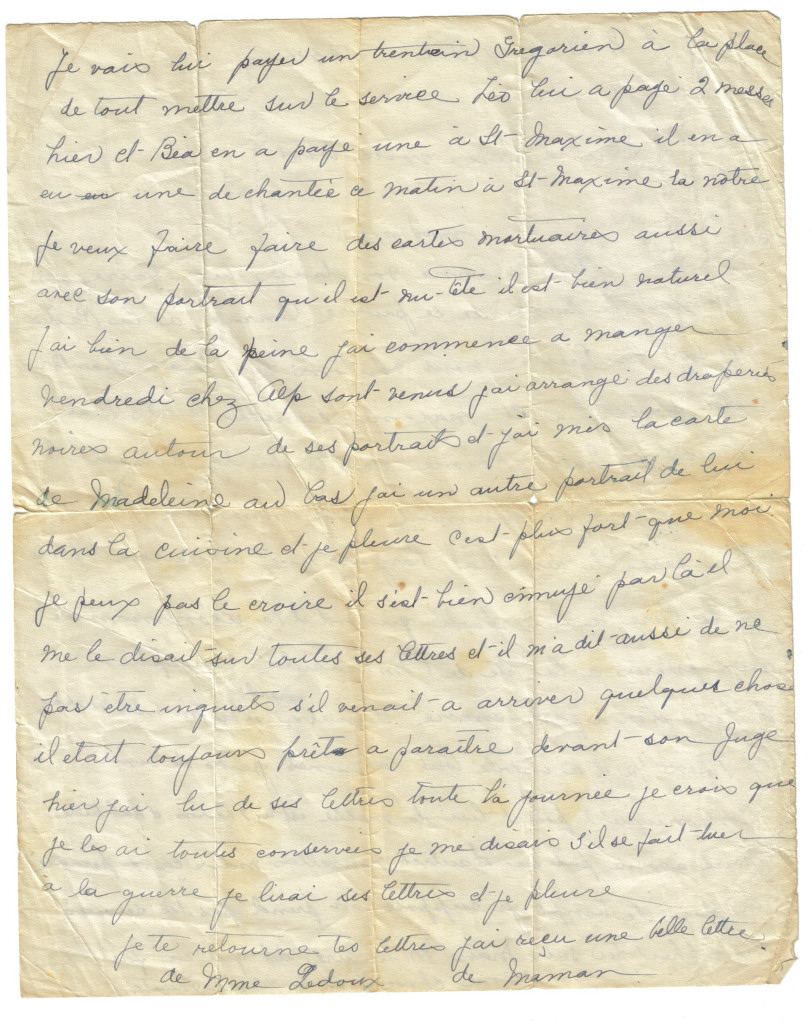 Je vais lui payer un trentain Gregorien à la place
de tout mettre sur le service Léo lui a payé 2 messes
hier et Béa en a paye une à St-Maxime il en a
eu une de chantée ce matin à St-Maxime la nôtre
Je veux faire faire des cartes mortuaires aussi
avec son portrait qu'il est nu-tête il est bien naturel
J'ai bien de la peine j'ai commence a manger
vendredi chez Alp sont venus j'ai arrangé des draperies
noires autour de ses portraits et j'ai mis la carte
de Madeleine au bas j'ai un autre portrait de lui
dans la cuisine et je pleure c'est plus fort que moi
je peux pas le croire il s'est bien ennuyé par là il
me le disait sur toutes ses lettres et il m'a dit aussi de ne
pas être inquiets s'il venait a arriver quelques chose
il etait toujours prêt a paraître devant son Juge
hier j'ai lu de ses lettres toute la journée je crois que
je les ai toutes conserveis je me disais s'il se fait tuer
à la guerre je lirai ses lettres et je pleure
je te retourne tes lettres j'ai reçu une belle lettre
de Mme Ledoux de Maman